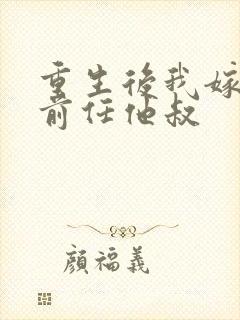 重生後我嫁
前任他叔
顏福義